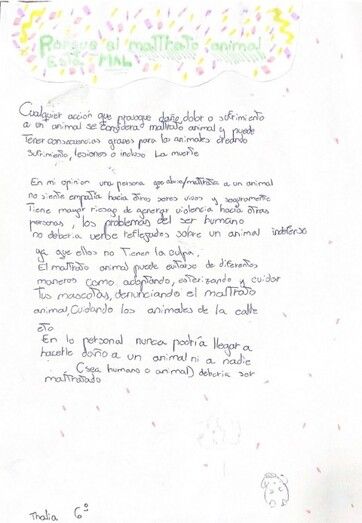 Porque el maltrato animal
Está MAL
Cualquier acción que provoque daño, dolor o sufrimiento
a un animal se considera maltrato animal y puede
Tener consecuencias graves para los animales creando
Sufrimiento, lesiones o incluso La muerte
En mi opinion una persona que abusa/maltrata a un animal
no siente empatía hacia otros seres vivos y seguramente
Tiene mayor riesgo de generar violencia hacia otras
personas, los problemas del ser humano
no deberia verse reflejados sobre un animal indefenso
ya que ellos no Tienen la culpa,
El maltrato animal puede evitarse de diferentes
maneras como adoptando, esterizando y cuidar
Tus mascotas, denunciando el maltrato
animal, Cuidando los animales de la calle
etc
En lo personal nunca podría llegar a
hacerle daño a un animal ni a nadie
(sea humano o animal) deberia ser
maltratado
Thalia 6º